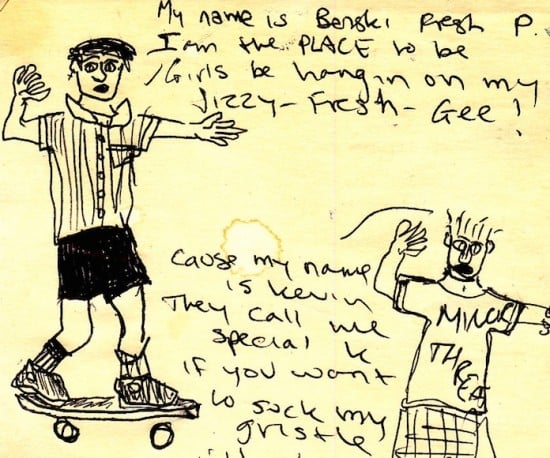 My name is Benski Fresh P.
I am the PLACE to be
Girls be hangin on my
Jizzy-Fresh-Gee!
Cause my name
is Kevin
They call me
special K
if you want
to suck my
gristle
MINOR
THREA